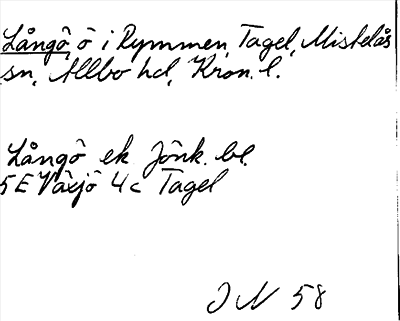 Långö, ö i Rymmen, Tagel, Mistelås
sn, Allbo hd, Kron. l.
Långö ek Jönk. bl.
5E Växjö 4c Tagel
J N 58